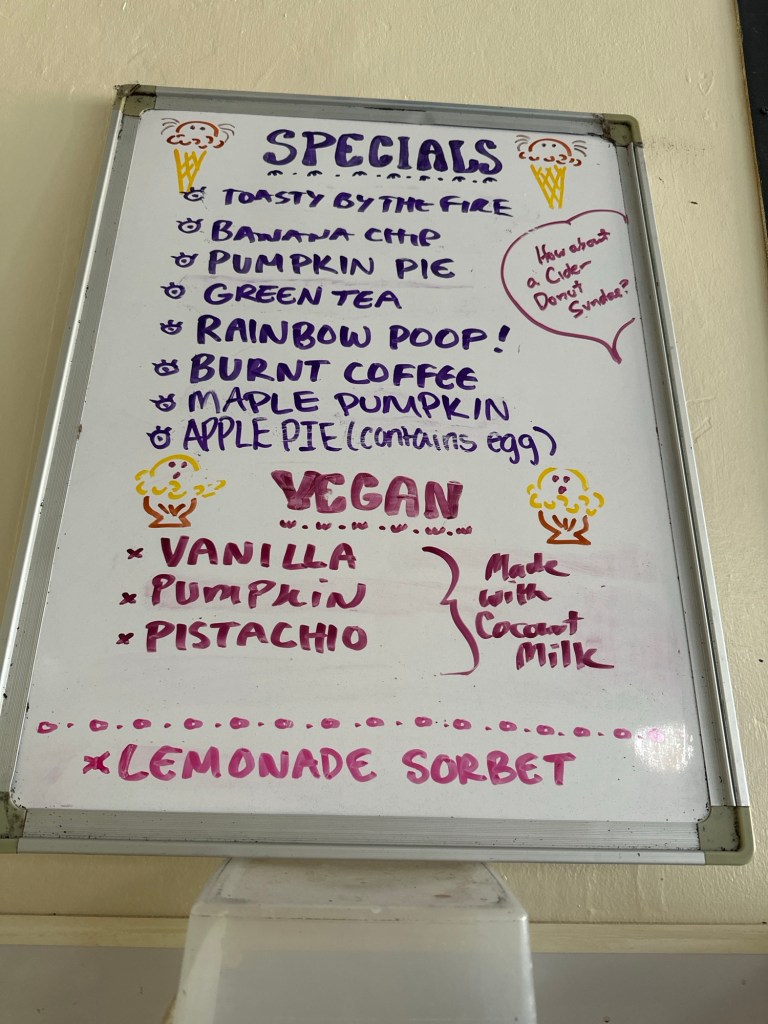 SPECIALS
TOASTY BY THE FIRE
BANANA CHIP
PUMPKIN PIE
GREEN TEA
RAINBOW POOP!
BURNT COFFEE
MAPLE PUMPKIN
APPLE PIE (contains egg)
How about
a Cider
Donut
Sundae?
VEGAN
VANILLA
PUMPKIN
PISTACHIO
Made
with
Coconut
Milk
LEMONADE SORBET